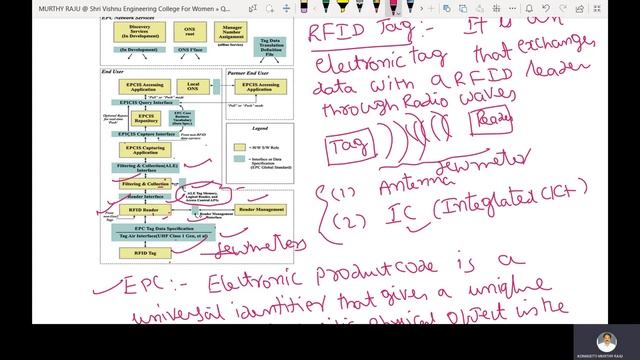 MURTHY RAJU @ Shri Vishnu Engineering College For Women + Q...
EPC Network Services
Discovery
Services
(In Development)
ONS
root
Manager
Number
Assignment
(offline Service)
Tag Data
Translation
Definition
File
(In Development)
ONS I'face
End User
Partner End User
EPCIS Accessing
Application
Local
ONS
EPCIS Accessing
Application
"Pull" or "Push" mode
"Pull" or "Push" mode
EPCIS Query Interface
Optional Bypass
for real-time
"Push"
EPCIS
Repository
EPC Core
Business
Vocabulary
(Data Spec.)
EPCIS Capture Interface
From non-RFID
data carriers
EPCIS Capturing
Application
Filtering & Collection(ALE) Interface
Filtering & Collection
ALE Tag Memory,
Logical Reader, and
Access Control APIs
Reader Interface
RFID Reader
Reader Management
Interface
Reader Management
EPC Tag Data Specification
Tag Air Interface(UHF Class 1 Gen, et al)
RFID Tag
Legend
= H/W S/W Role
= Interface or Data
Specification
(EPC Global Standard)
fewmeters
RFID Tag:- It is an
electronic tag that exchanges
data with a RFID reader
through Radio waves
Tag
Reader
fewmeter
(1) Antenna
(2) IC (Integrated CKt)
EPC:- Electronic product code is a
universal identifier that gives a unique
physical object in the
KONASETI MURTHY RAJU